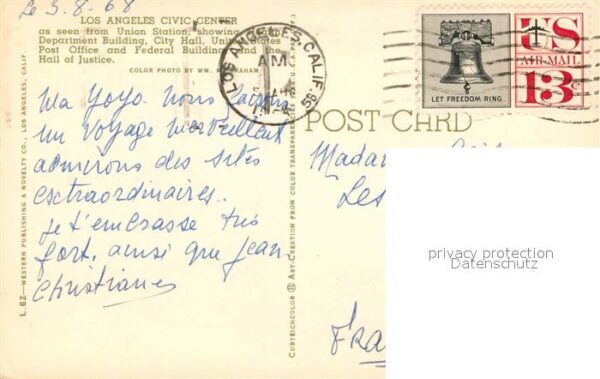 Le 3.8.68
LOS ANGELES CIVIC CENTER
as seen from Union Station, showing
Department Building, City Hall, United States
Post Office and Federal Building and the
Hall of Justice.
COLOR PHOTO BY WM.
Ma Yoyo. Nous faisons
un voyage merveilleux
admirons des sites
extraordinaires.
Je t'embrasse très
fort, ainsi que Jean
Christiane
L.62—WESTERN PUBLISHING & NOVELTY CO., LOS ANGELES, CALIF.
CURTEICHCOLOR ® ART-CREATION FROM COLOR TRANSPARENCY
LOS ANGELES, CALIF.
AM
LET FREEDOM RING
US
AIR MAIL
13c
POST CARD
Madame
Les
privacy protection
Datenschutz